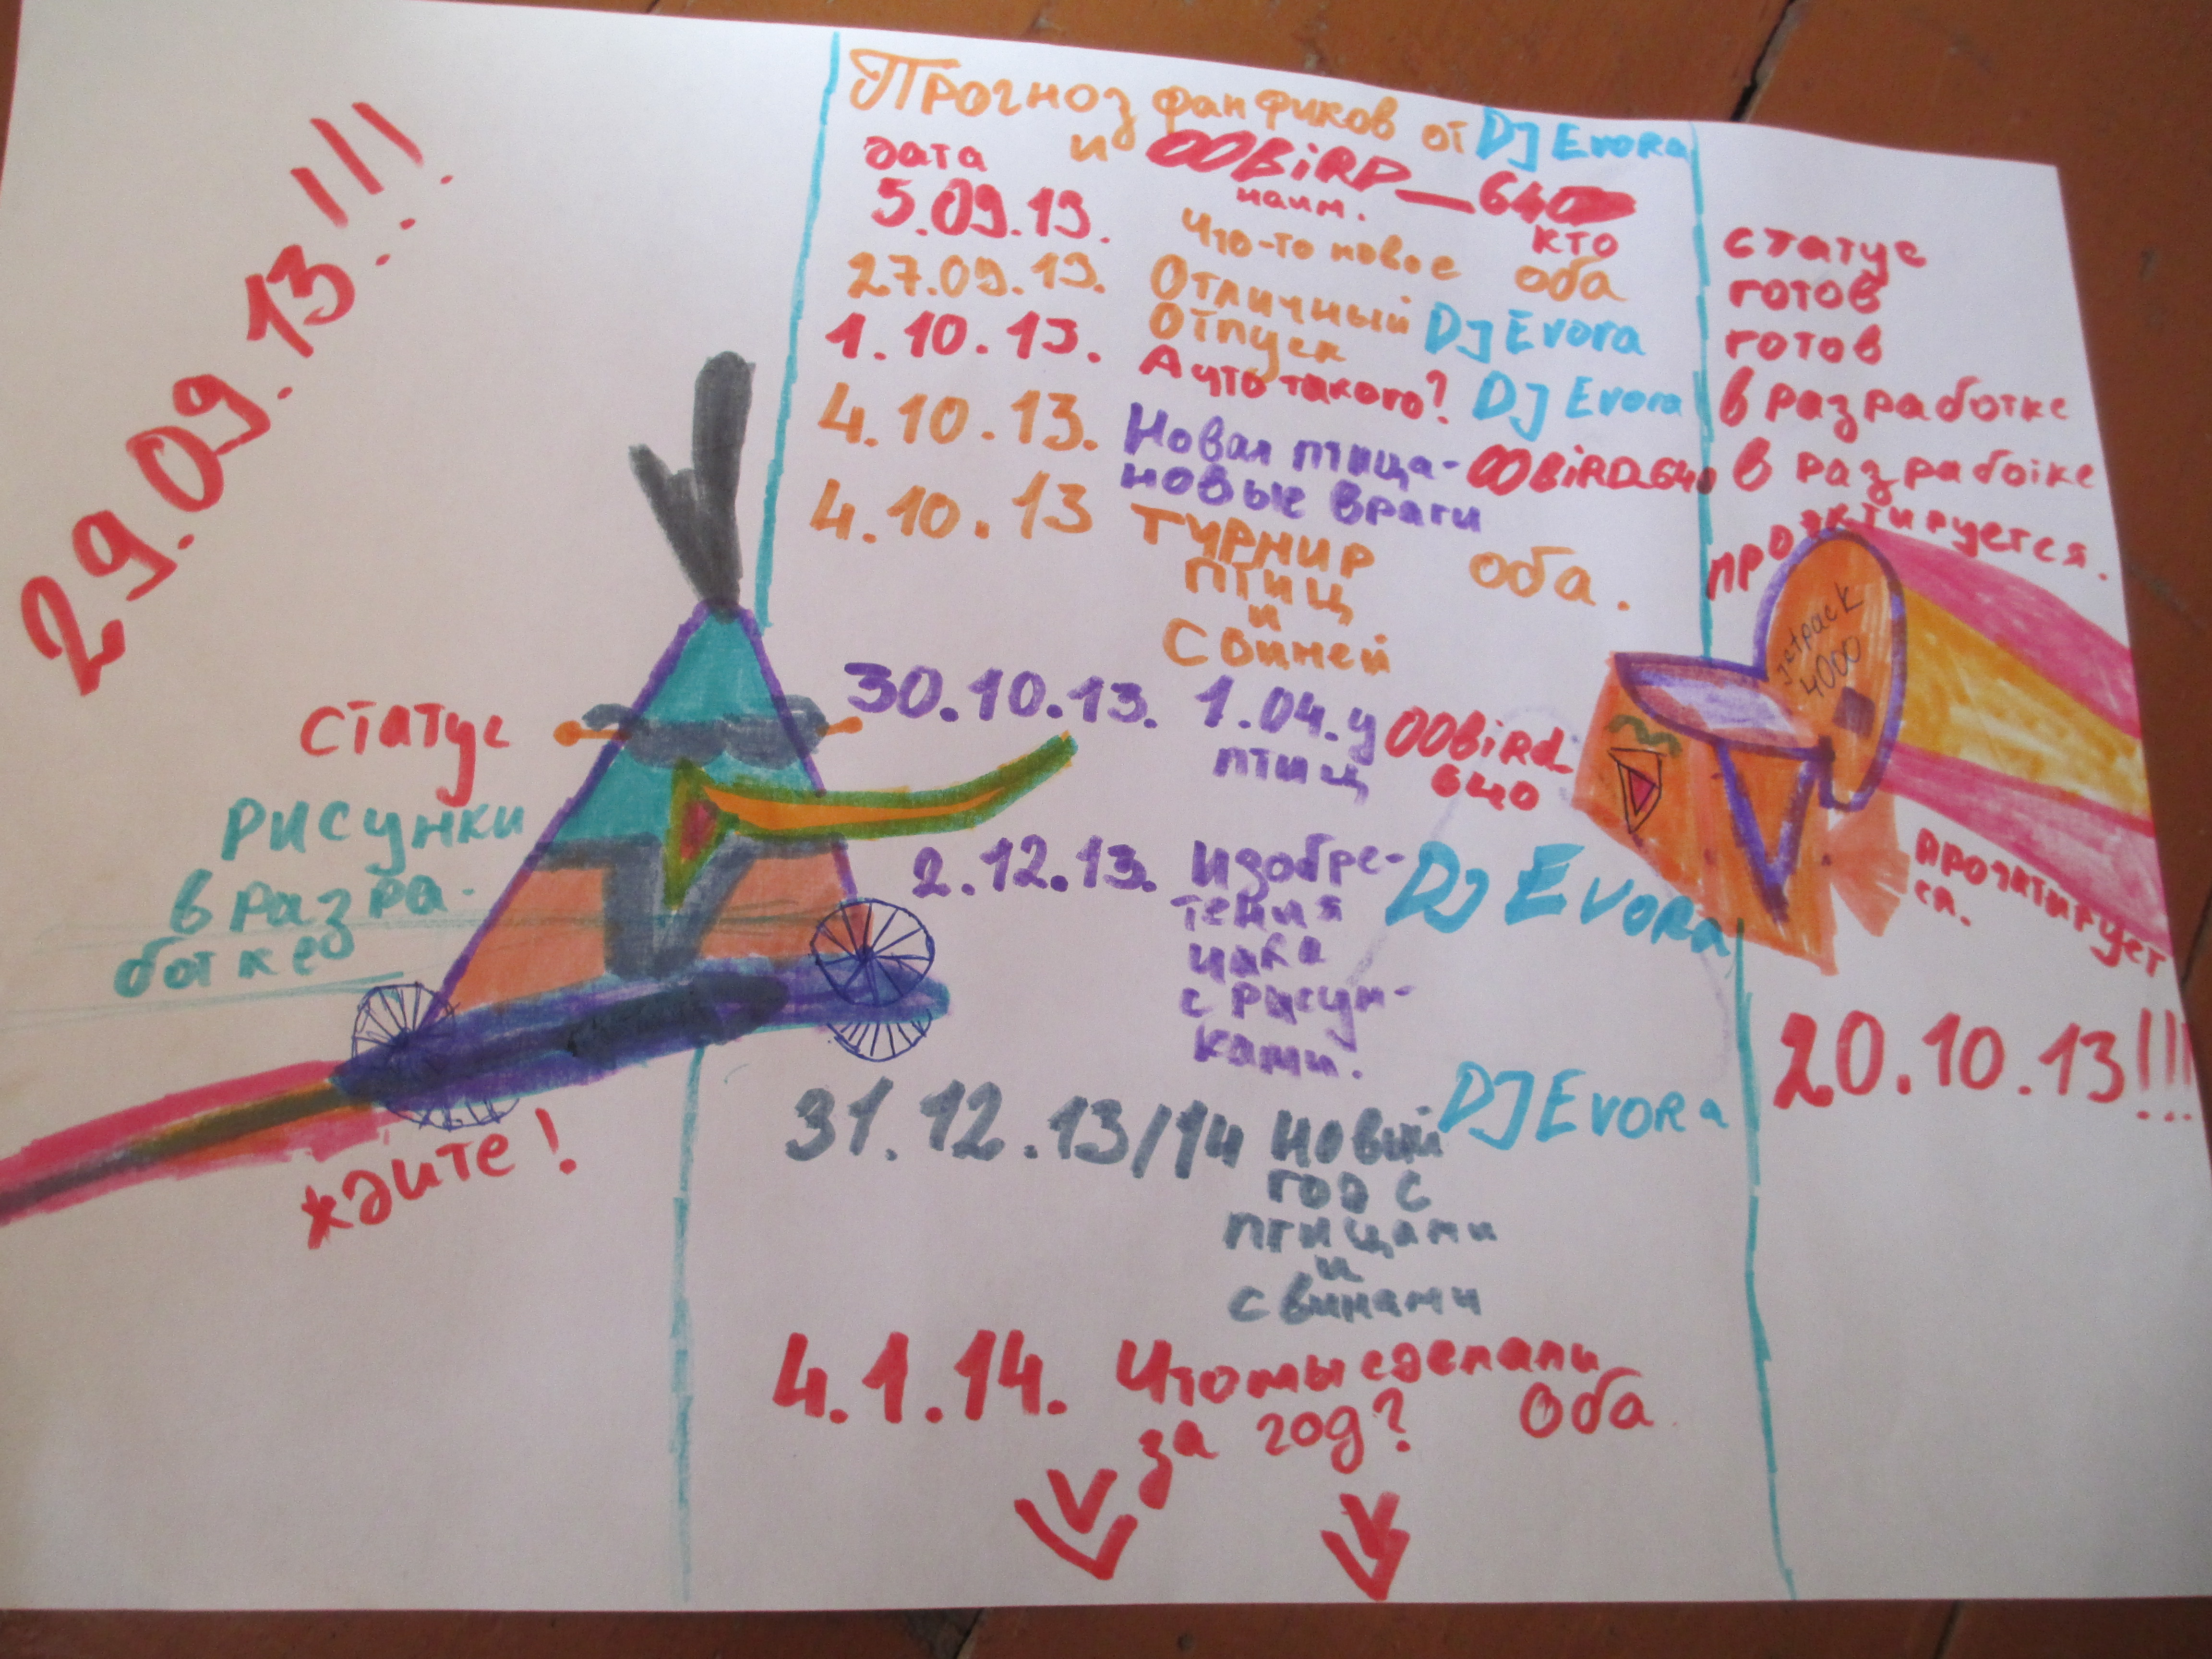 29.09.13!!!
Прогноз фанфиков от DJ Evora
и OOBiRD_640
дата наим. кто статус
5.09.13. Что-то новое оба готов
27.09.13. Отличный DJ Evora готов
отпуск
1.10.13. А что такого? DJ Evora в разработке
4.10.13. Новая птица- OOBiRD_640 в разработке
новые враги
4.10.13 Турнир оба. проэктируется.
птиц
и
Свиней
30.10.13. 1.04.у OOBird_
птиц 640
2.12.13. Изобре- DJ Evora
тения
чака
с рисун-
ками.
31.12.13/14 Новый DJ Evora
год с
птицами
и
свинами
4.1.14. Что мы сделали
за год? Оба
статус
рисунки
в разра-
ботке
ждите!
Jetpack
4000
прочтирует
ся.
20.10.13!!!